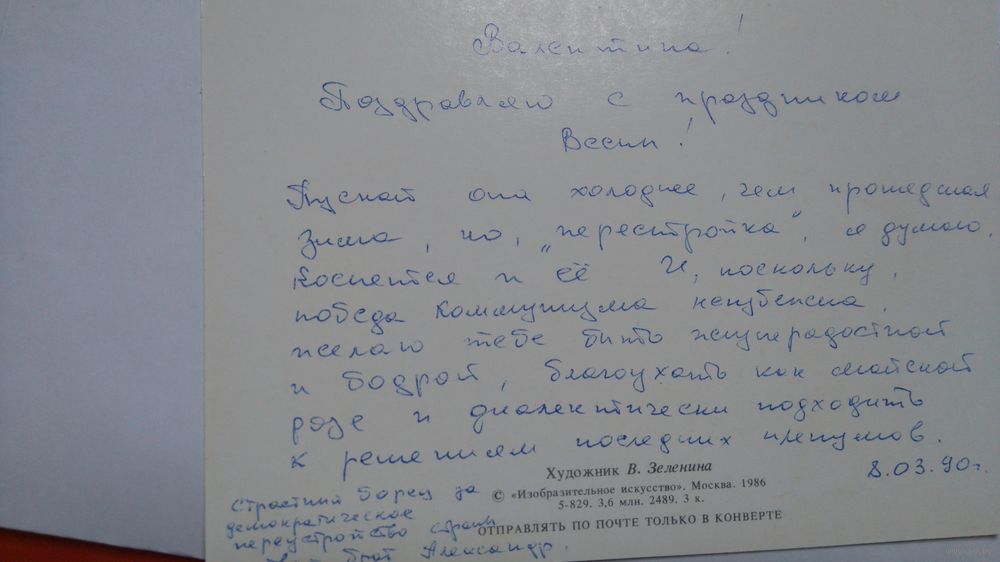 Валентина!
Поздравляю с праздником
Весны!
Пускай она холоднее, чем прошедшая
зима, но, „перестройка", я думаю,
коснётся и её И, поскольку,
победа Коммунизма неизбежна,
желаю тебе быть жизнерадостной
и бодрой, благоухать как майской
розе и диалектически подходить
к решениям последних пленумов.
8.03.90г.
Художник В. Зеленина
© «Изобразительное искусство». Москва. 1986
5-829. 3,6 млн. 2489. 3 к.
ОТПРАВЛЯТЬ ПО ПОЧТЕ ТОЛЬКО В КОНВЕРТЕ
Страстный борец за
демократическое
переустройство страны
брат Александр.